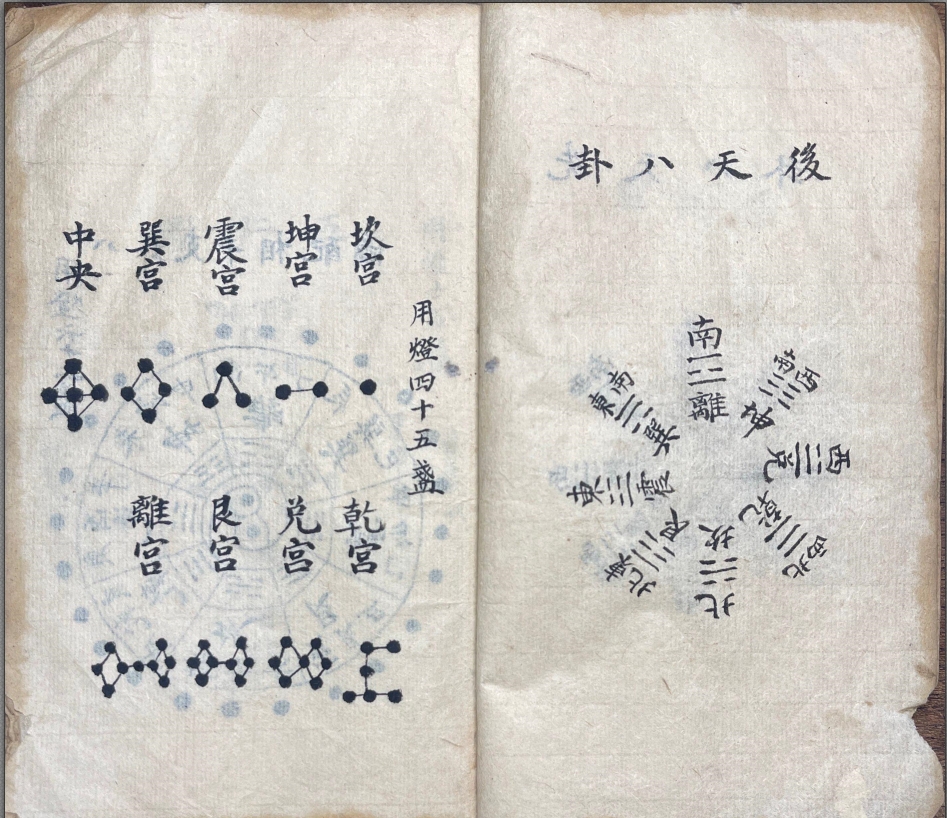 後天八卦
南
離
西南
坤
西
兌
西北
乾
北
坎
東北
艮
東
震
東南
巽
用燈四十五盞
坎宮
坤宮
震宮
巽宮
中央
乾宮
兌宮
艮宮
離宮